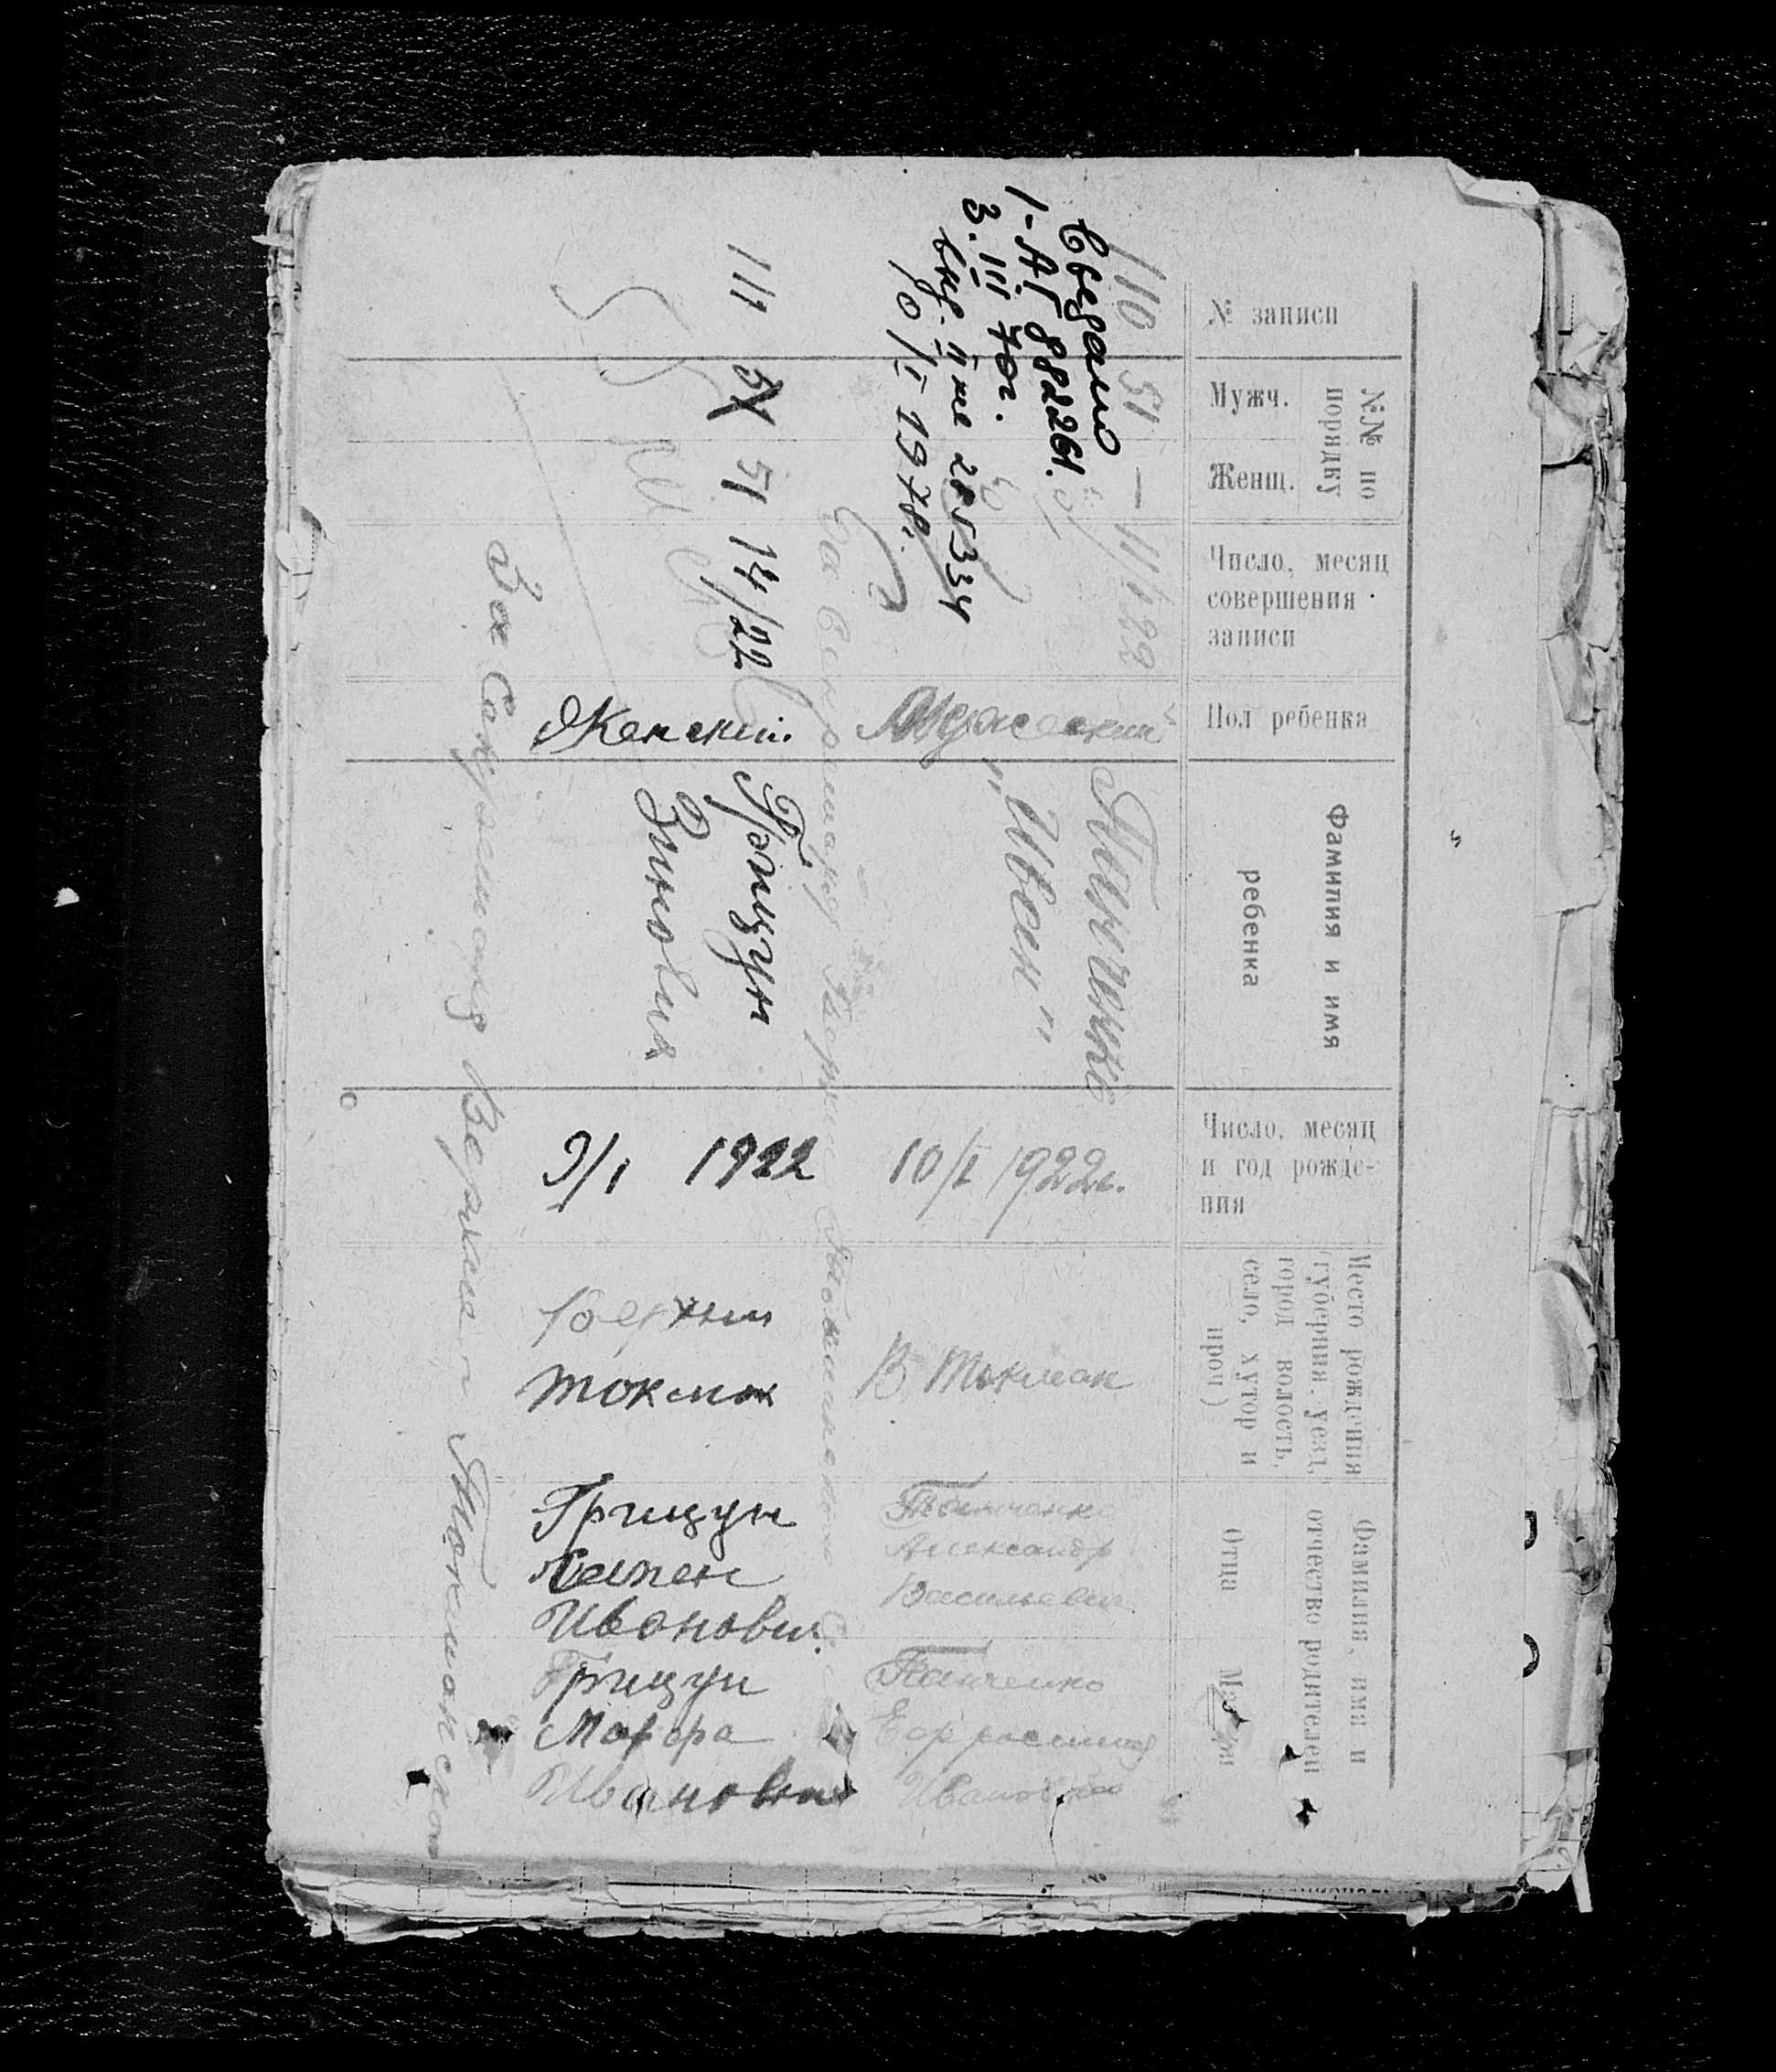 № записи
№№ по
порядку
Мужч.
Женщ.
Число, месяц
совершения
записи
Пол ребенка
Фамилия и имя
ребенка
Число, месяц
и год рожде-
ния
Место рождения
(губерния, уезд,
город волость,
село, хутор и
проч)
Фамилия, имя и
отчество родителей
Отца
Матери
110 51 — 11/I 22
Мужеский
Панченко
"Ивен"
10/I 1922г.
В Токмак
Панченко
Александр
Василевич
Панченко
Ефросиния
Ивановна
Сведано
1-АГ 882261.
3.III 70г.
выд. II ЖС 285334
10/I 1978г.
111 51 14/22
Женский
Грицун
Зиновия
9/1 1922
Верхний
Токмак
Грицун
Семен
Иванович
Грицун
Марфа
Ивановна
За Секретаря Верхне Токмакского